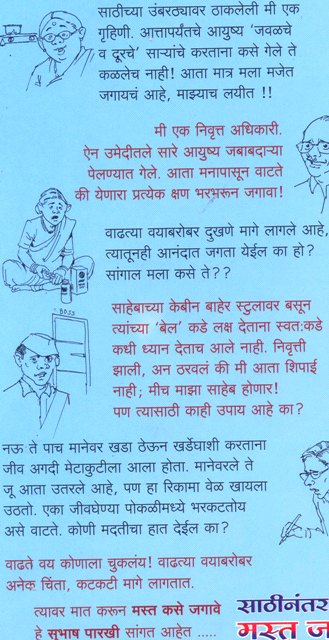 साठीच्या उंबरठ्यावर ठाकलेली मी एक
गृहिणी. आत्तापर्यंतचे आयुष्य ‘जवळचे
व दूरचे’ साऱ्यांचे करताना कसे गेले ते
कळलेच नाही! आता मात्र मला मजेत
जगायचं आहे, माझ्याच लयीत !!
मी एक निवृत्त अधिकारी.
ऐन उमेदीतले सारे आयुष्य जबाबदाऱ्या
पेलण्यात गेले. आता मनापासून वाटते
की येणारा प्रत्येक क्षण भरभरून जगावा!
वाढत्या वयाबरोबर दुखणे मागे लागले आहे,
त्यातूनही आनंदात जगता येईल का हो?
सांगाल मला कसे ते??
BOSS
साहेबाच्या केबीन बाहेर स्टुलावर बसून
त्यांच्या ‘बेल’ कडे लक्ष देताना स्वत:कडे
कधी ध्यान देताच आले नाही. निवृत्ती
झाली, अन ठरवलं की मी आता शिपाई
नाही; मीच माझा साहेब होणार!
पण त्यासाठी काही उपाय आहे का?
नऊ ते पाच मानेवर खडा ठेऊन खर्डेघाशी करताना
जीव अगदी मेटाकुटीला आला होता. मानेवरले ते
जू आता उतरले आहे, पण हा रिकामा वेळ खायला
उठतो. एका जीवघेण्या पोकळीमध्ये भरकटतोय
असे वाटते. कोणी मदतीचा हात देईल का?
वाढते वय कोणाला चुकलंय! वाढत्या वयाबरोबर
अनेक चिंता, कटकटी मागे लागतात.
त्यावर मात करून मस्त कसे जगावे
हे सुभाष पारखी सांगत आहेत .....
साठीनंतर
मस्त ज